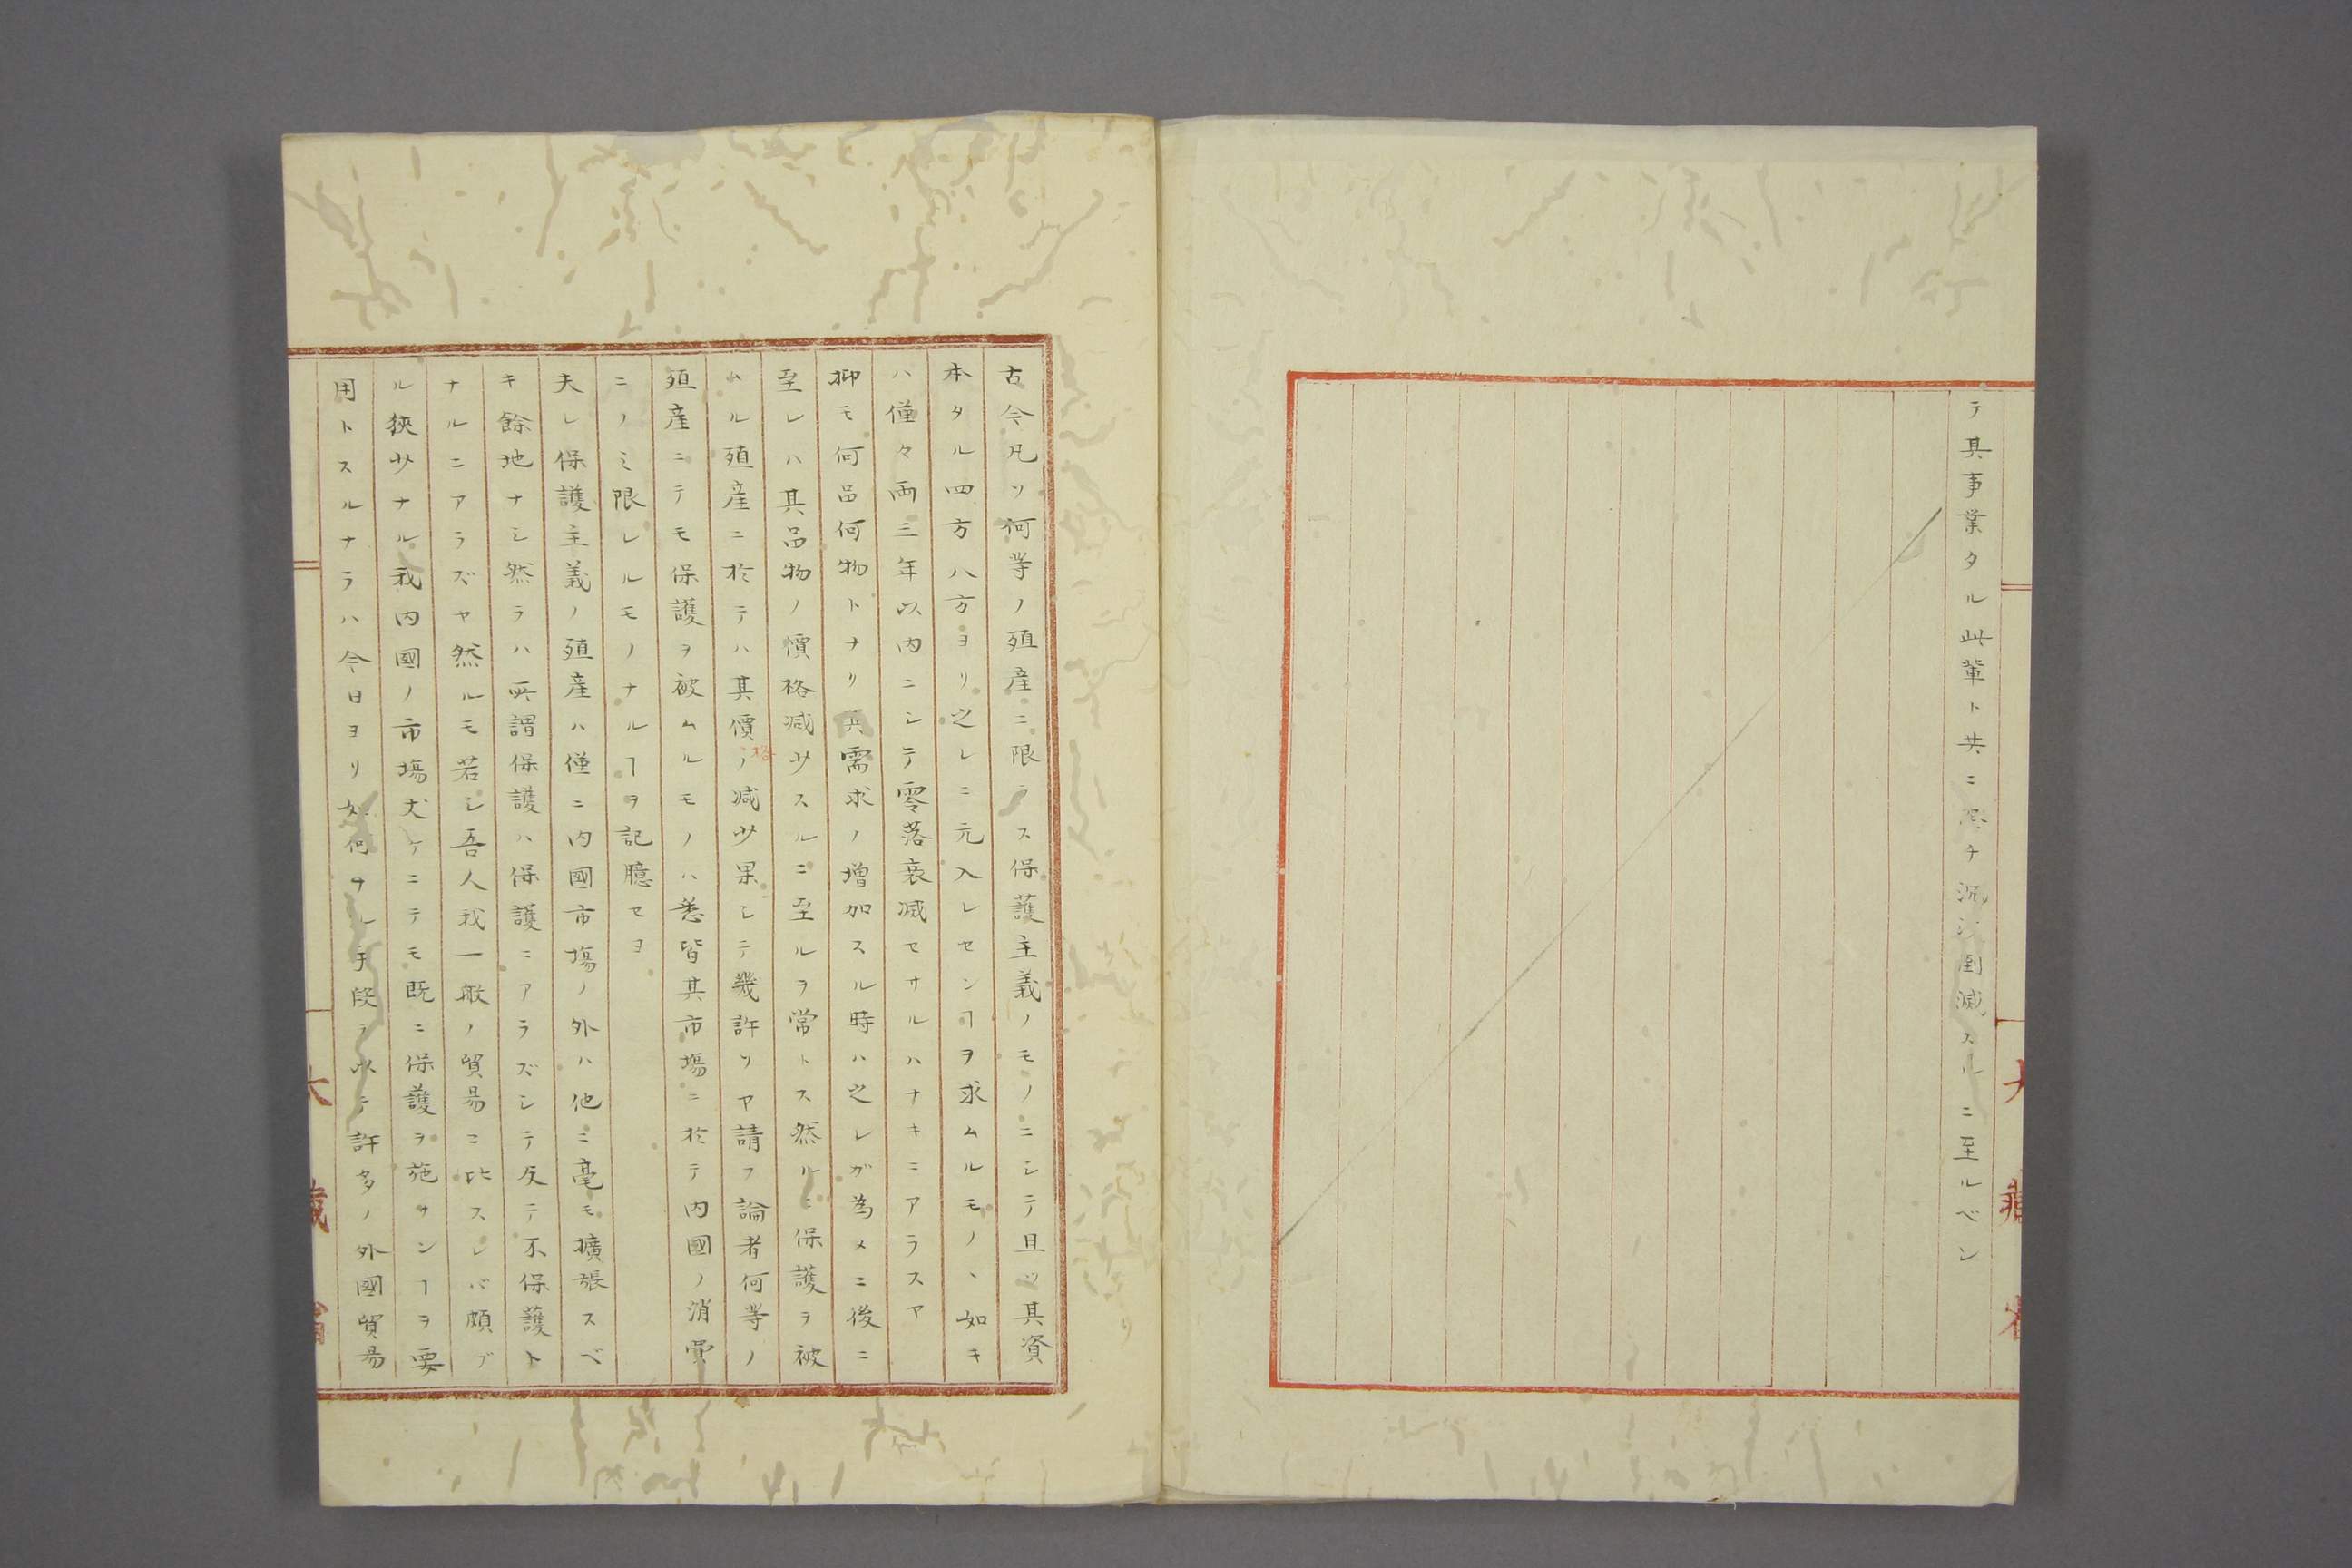 テ其事業タル此輩ト共ニ忽チ沉淪倒滅スルニ至ルベシ
大藏省
古今凡ソ何等ノ殖産ニ限ラス保護主義ノモノニシテ且ツ其資
本タル四方八方ヨリ之レニ元入レセンヿヲ求ムルモノヽ如キ
ハ僅々両三年以内ニシテ零落衰减セサルハナキニアラスヤ
抑モ何品何物トナリ其需求ノ増加スル時ハ之レガ為メニ後ニ
至レハ其品物ノ價格减少スルニ至ルヲ常トス然ルニ保護ヲ被
ムル殖産ニ於テハ其價格ノ减少果シテ幾許ソヤ請フ論者何等ノ
殖産ニテモ保護ヲ被ムルモノハ悉皆其市塲ニ於テ内國ノ消買
ニノミ限レルモノナルヿヲ記臆セヨ
夫レ保護主義ノ殖産ハ僅ニ内國市塲ノ外ハ他ニ毫モ擴張スベ
キ餘地ナシ然ラハ所謂保護ハ保護ニアラズシテ反テ不保護ト
ナルニアラズヤ然ルモ若シ吾人我一般ノ貿易ニ比スレバ頗ブ
ル狹少ナル我内國ノ市塲丈ケニテモ既ニ保護ヲ施サンヿヲ要
用トスルナラハ今日ヨリ如何ナル手段ヲ以テ許多ノ外國貿易
大藏省